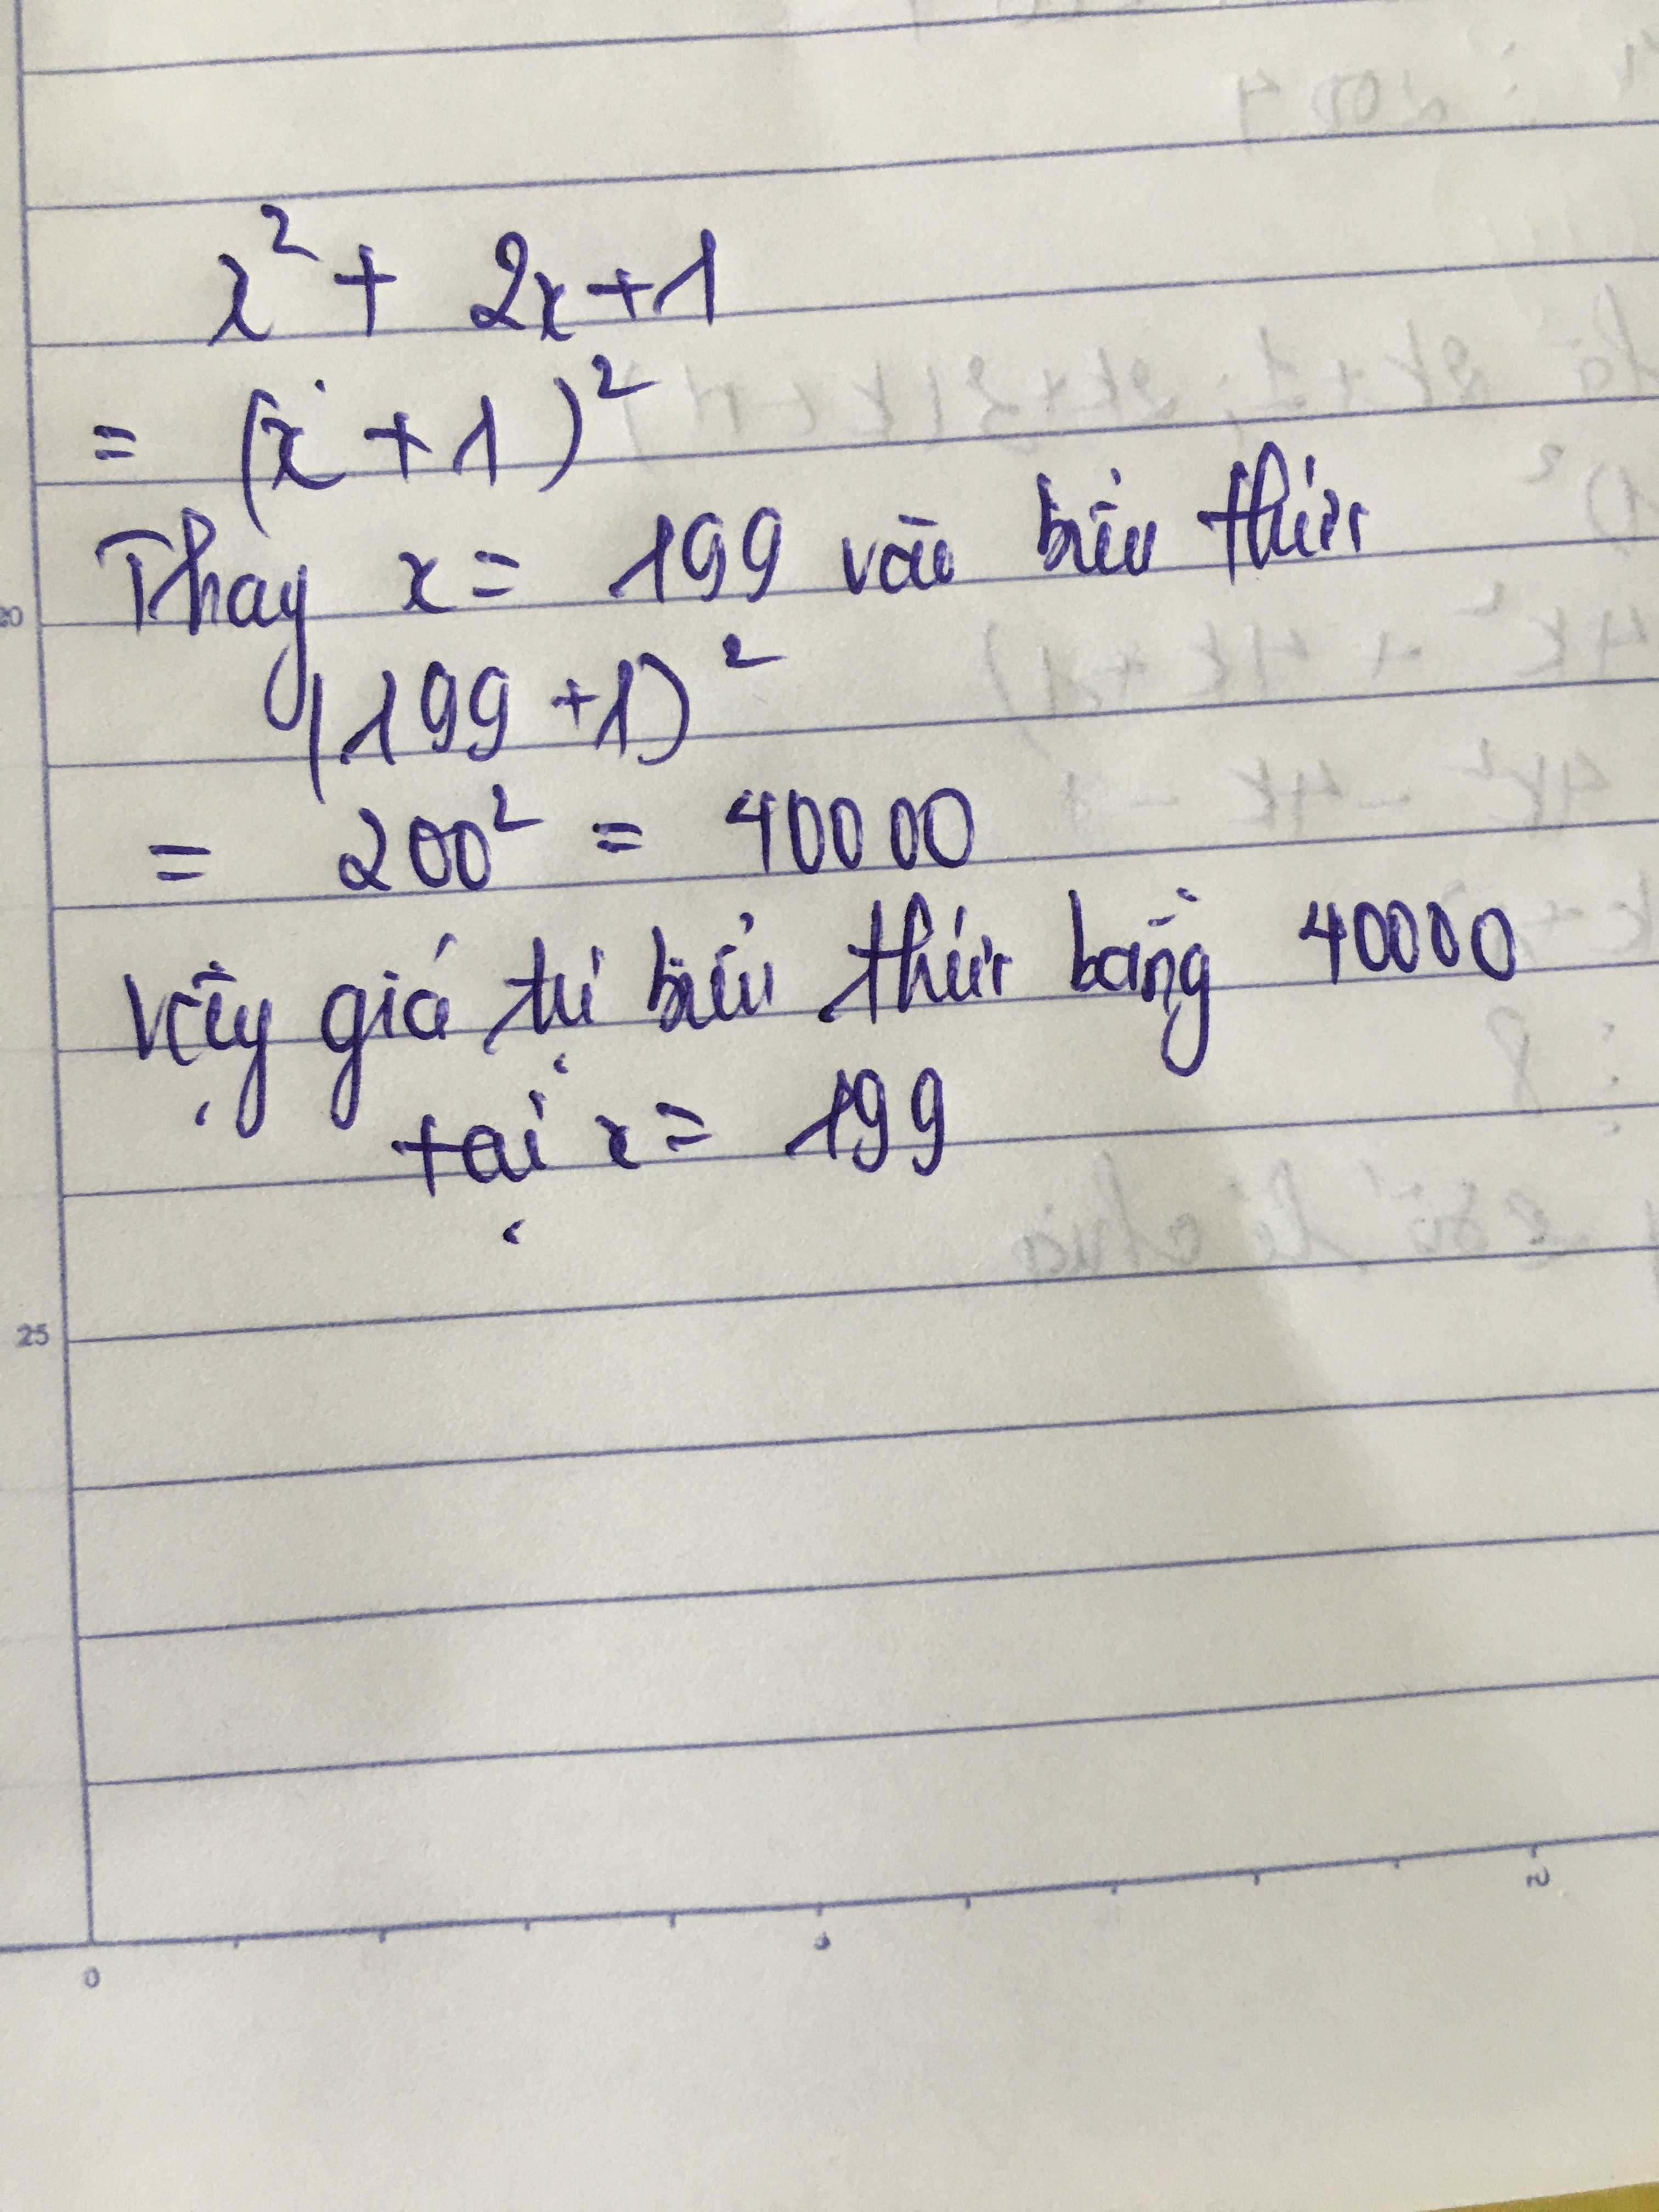 x² + 2x+1
= (x + 1)²
Thay x = 199 vào biểu thức
(199 +1)²
= 200² = 40000
Vậy giá trị biểu thức bằng 40000
tại x = 199
20
25
0